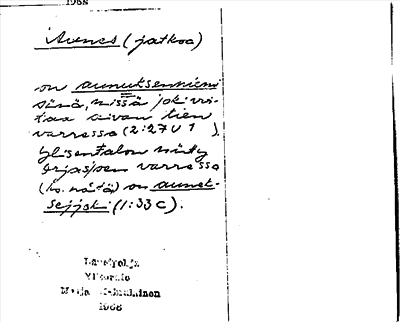 1968
Aunes (jatkoa)
on aunuksenniemi
siinä, missä joki vir-
taa aivan tien
varressa (2:27U1).
Ylisentalon niitty
varressa
(ks. nätä) on aunek-
sejjoki (1:33c).
Ylitornio
1968